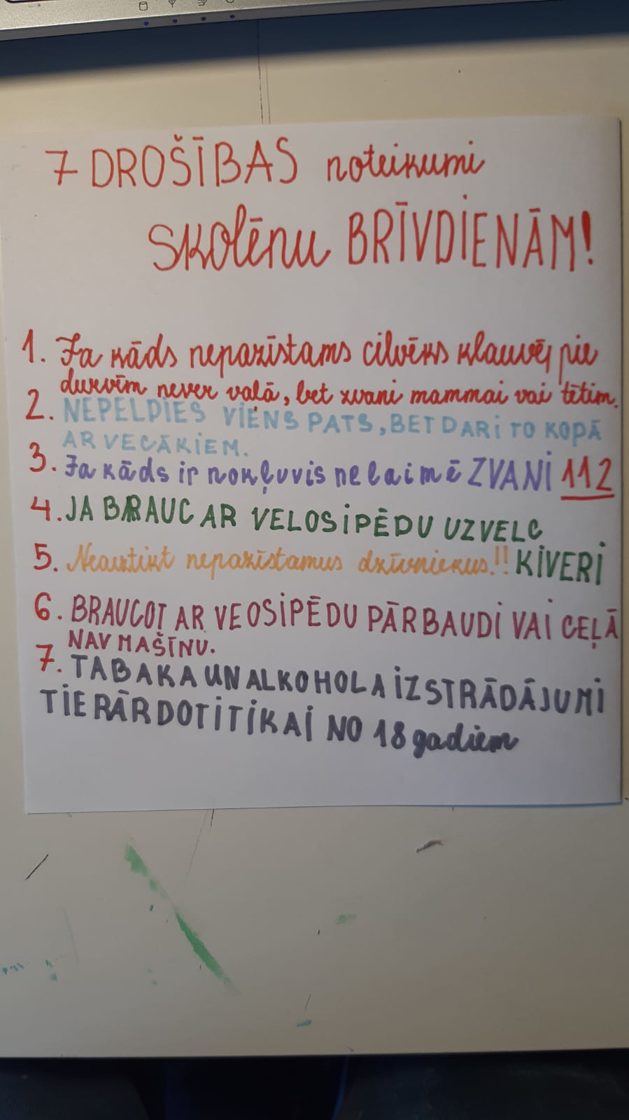 7 DROŠĪBAS noteikumi
SKolēnu BRĪVDIENĀM!
1. Ja kāds nepazīstams cilvēks klauvēj pie
durvīm never vaļā, bet zvani mammai vai tētim.
2. NEPELDIES VIENS PATS, BET DARI TO KOPĀ
AR VECĀKIEM.
3. Ja kāds ir nokļuvis nelaimē ZVANI 112
4. JA BRAUC AR VELOSIPĒDU UZVELC
KIVERI
5. Neaiztikt nepazīstamus dzīvniekus!!
6. BRAUCOT AR VEOSIPĒDU PĀRBAUDI VAI CEĻĀ
NAV MAŠĪNU.
7. TABAKA UN ALKOHOLA IZSTRĀDĀJUMI
TIE PĀRDOTI TIKAI NO 18 gadiem